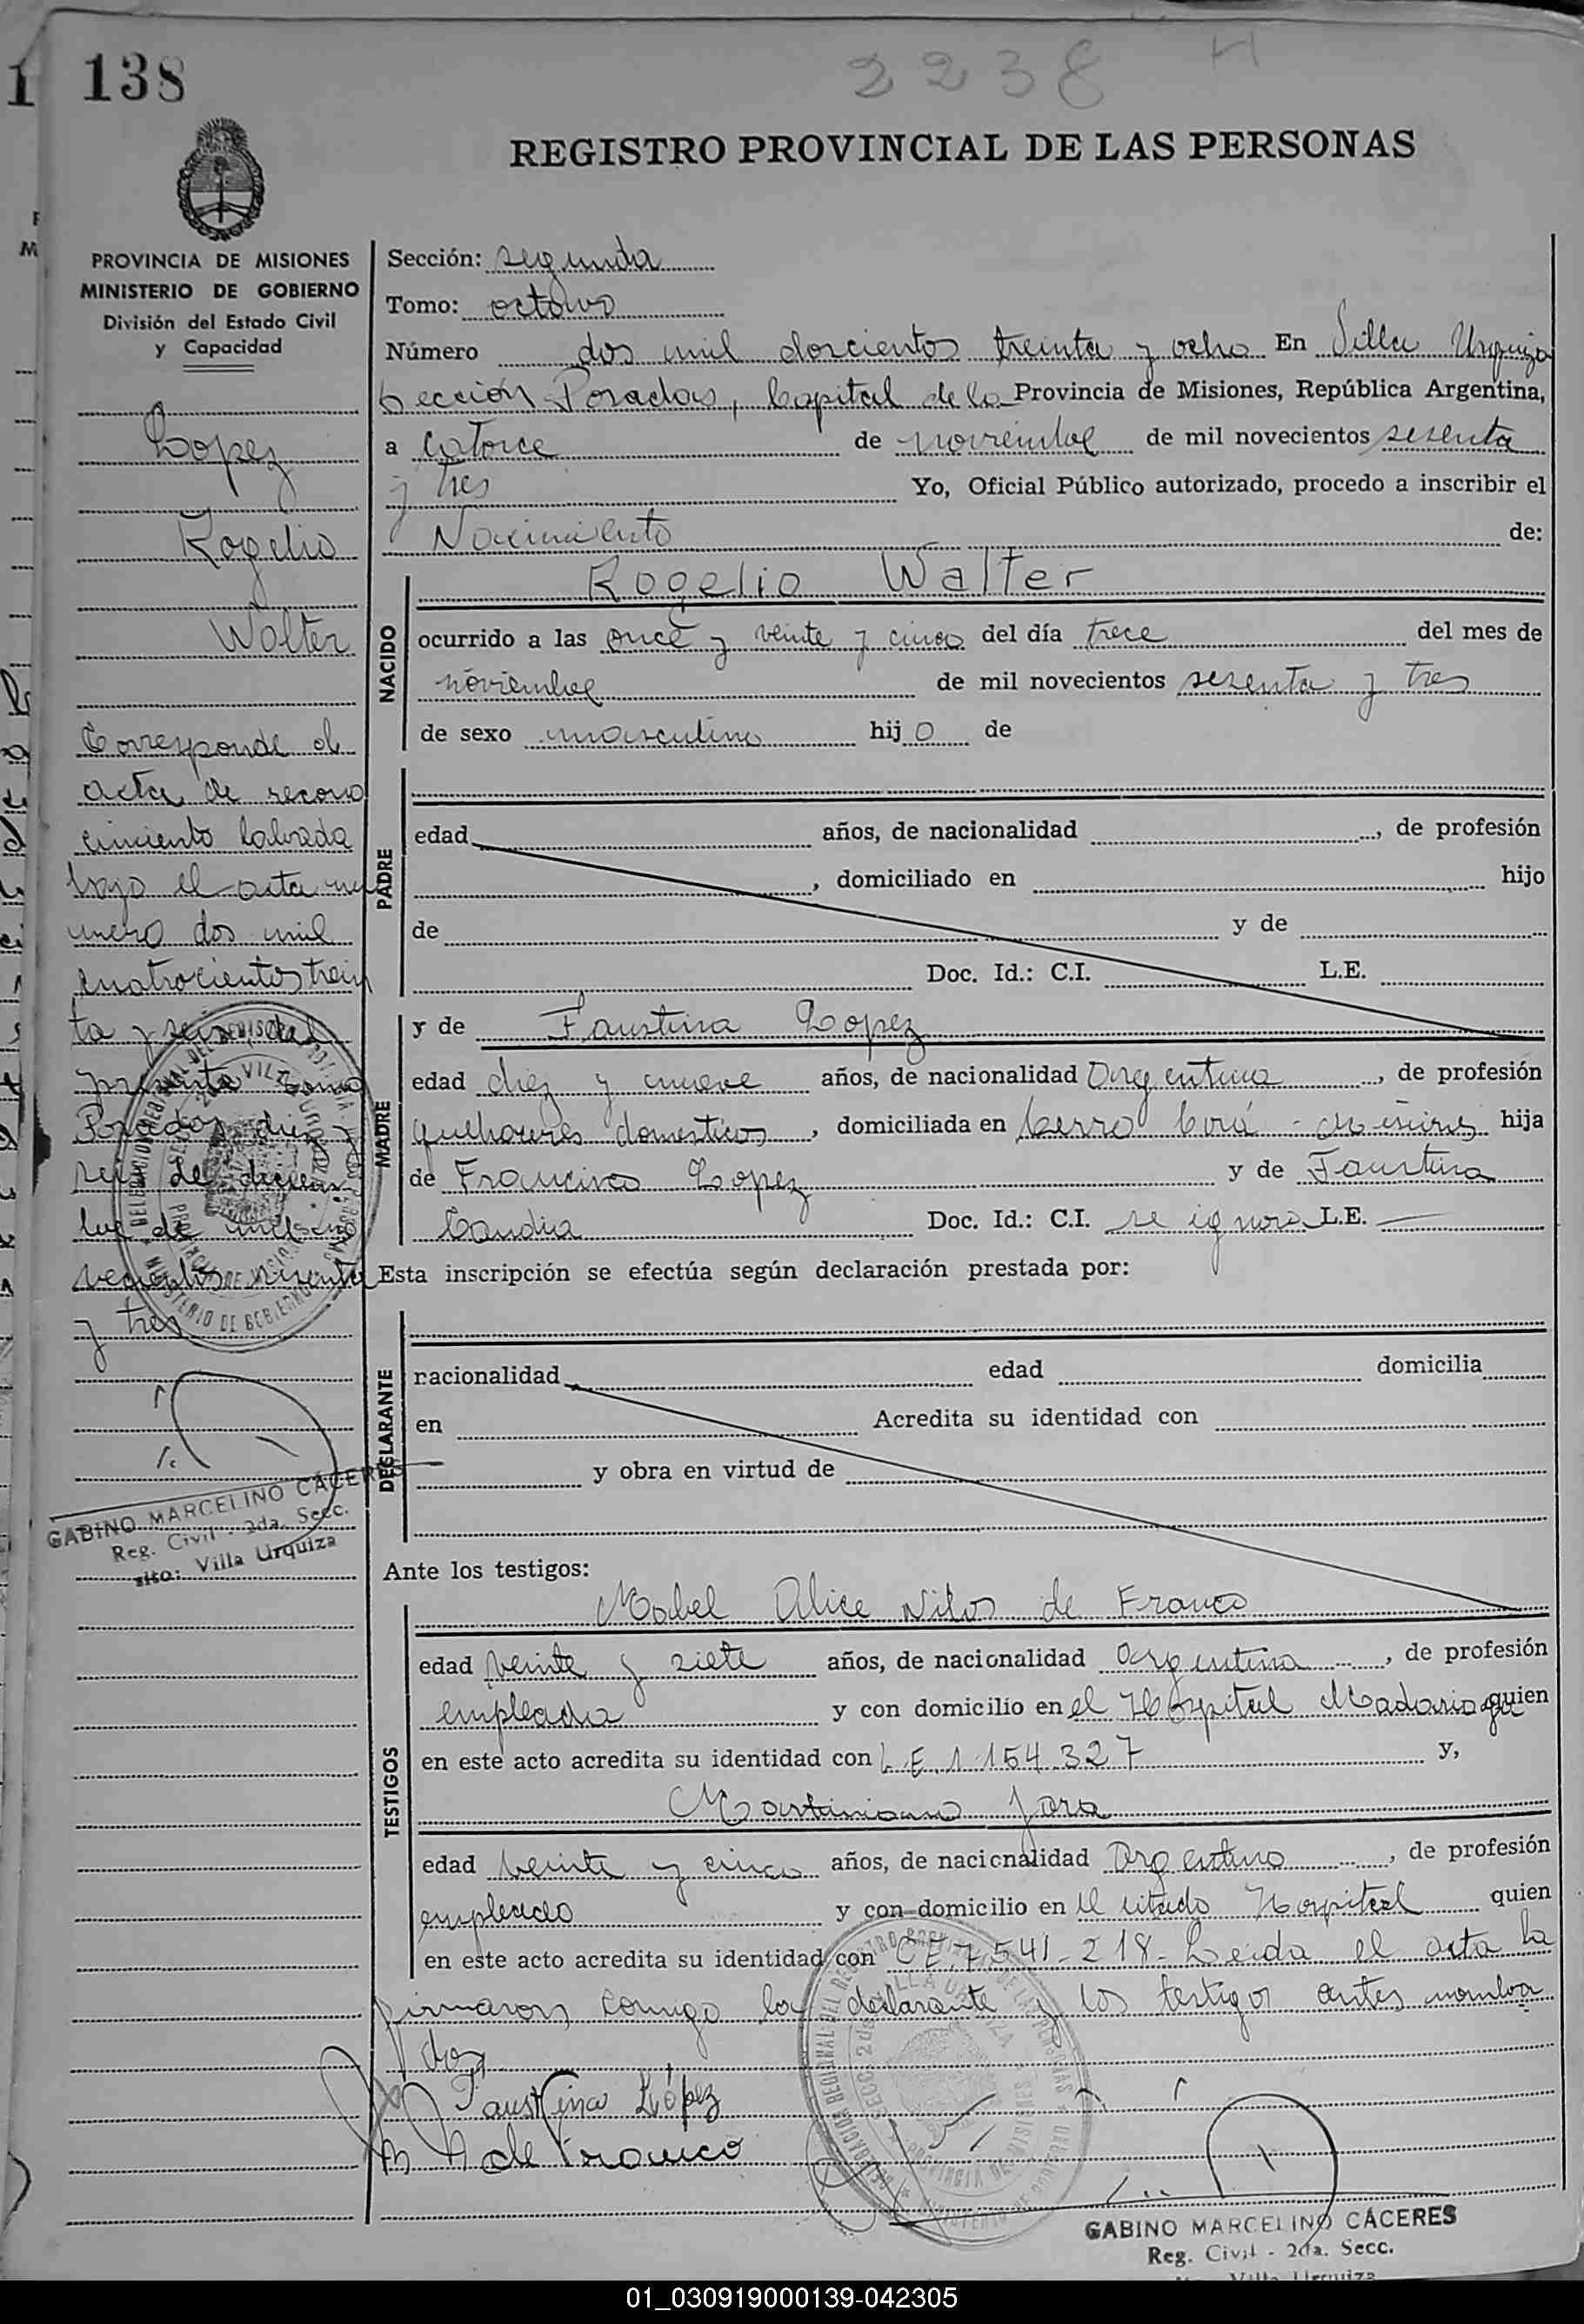 138
2238 H
REGISTRO PROVINCIAL DE LAS PERSONAS
PROVINCIA DE MISIONES
MINISTERIO DE GOBIERNO
División del Estado Civil
y Capacidad
Lopez
Rogelio
Walter
Corresponde el
acta de recono
cimiento labrada
bajo el acta nu
mero dos mil
cuatrocientos trein
ta y seis, del
presente tomo
Posadas, diez y
seis de diciem
bre de mil no
vecientos sesenta
y tres
GABINO MARCELINO CÁCERES
Reg. Civil - 2da. Secc.
sito: Villa Urquiza
Sección: segunda
Tomo: octavo
Número dos mil doscientos treinta y ocho En Villa Urquiza
Sección Posadas, Capital de la Provincia de Misiones, República Argentina,
a catorce de noviembre de mil novecientos sesenta
y tres Yo, Oficial Público autorizado, procedo a inscribir el
Nacimiento de:
NACIDO
Rogelio Walter
ocurrido a las once y veinte y cinco del día trece del mes de
noviembre de mil novecientos sesenta y tres
de sexo masculino hijo de
PADRE
edad años, de nacionalidad , de profesión
, domiciliado en hijo
de y de
Doc. Id.: C.I. L.E.
MADRE
y de Faustina Lopez
edad diez y nueve años, de nacionalidad Argentina , de profesión
quehaceres domesticos , domiciliada en Cerro Corá - Misiones hija
de Francisco Lopez y de Faustina
Candia Doc. Id.: C.I. se ignora L.E. —
Esta inscripción se efectúa según declaración prestada por:
DECLARANTE
nacionalidad edad domicilia
en Acredita su identidad con
y obra en virtud de
Ante los testigos:
TESTIGOS
Mabel Alice Nilos de Franco
edad veinte y siete años, de nacionalidad argentina , de profesión
empleada y con domicilio en el Hospital Madariaga quien
en este acto acredita su identidad con L.E. 1.154.327 y,
Martiniano Jara
edad veinte y cinco años, de nacionalidad Argentino , de profesión
empleado y con domicilio en el citado Hospital quien
en este acto acredita su identidad con C.E. 7.541-218- Leida el acta la
firmaron comigo la declarante y los testigos antes nombra
dos
Faustina López
de Franco
GABINO MARCELINO CÁCERES
Reg. Civil - 2da. Secc.
Villa Urquiza
01_030919000139-042305